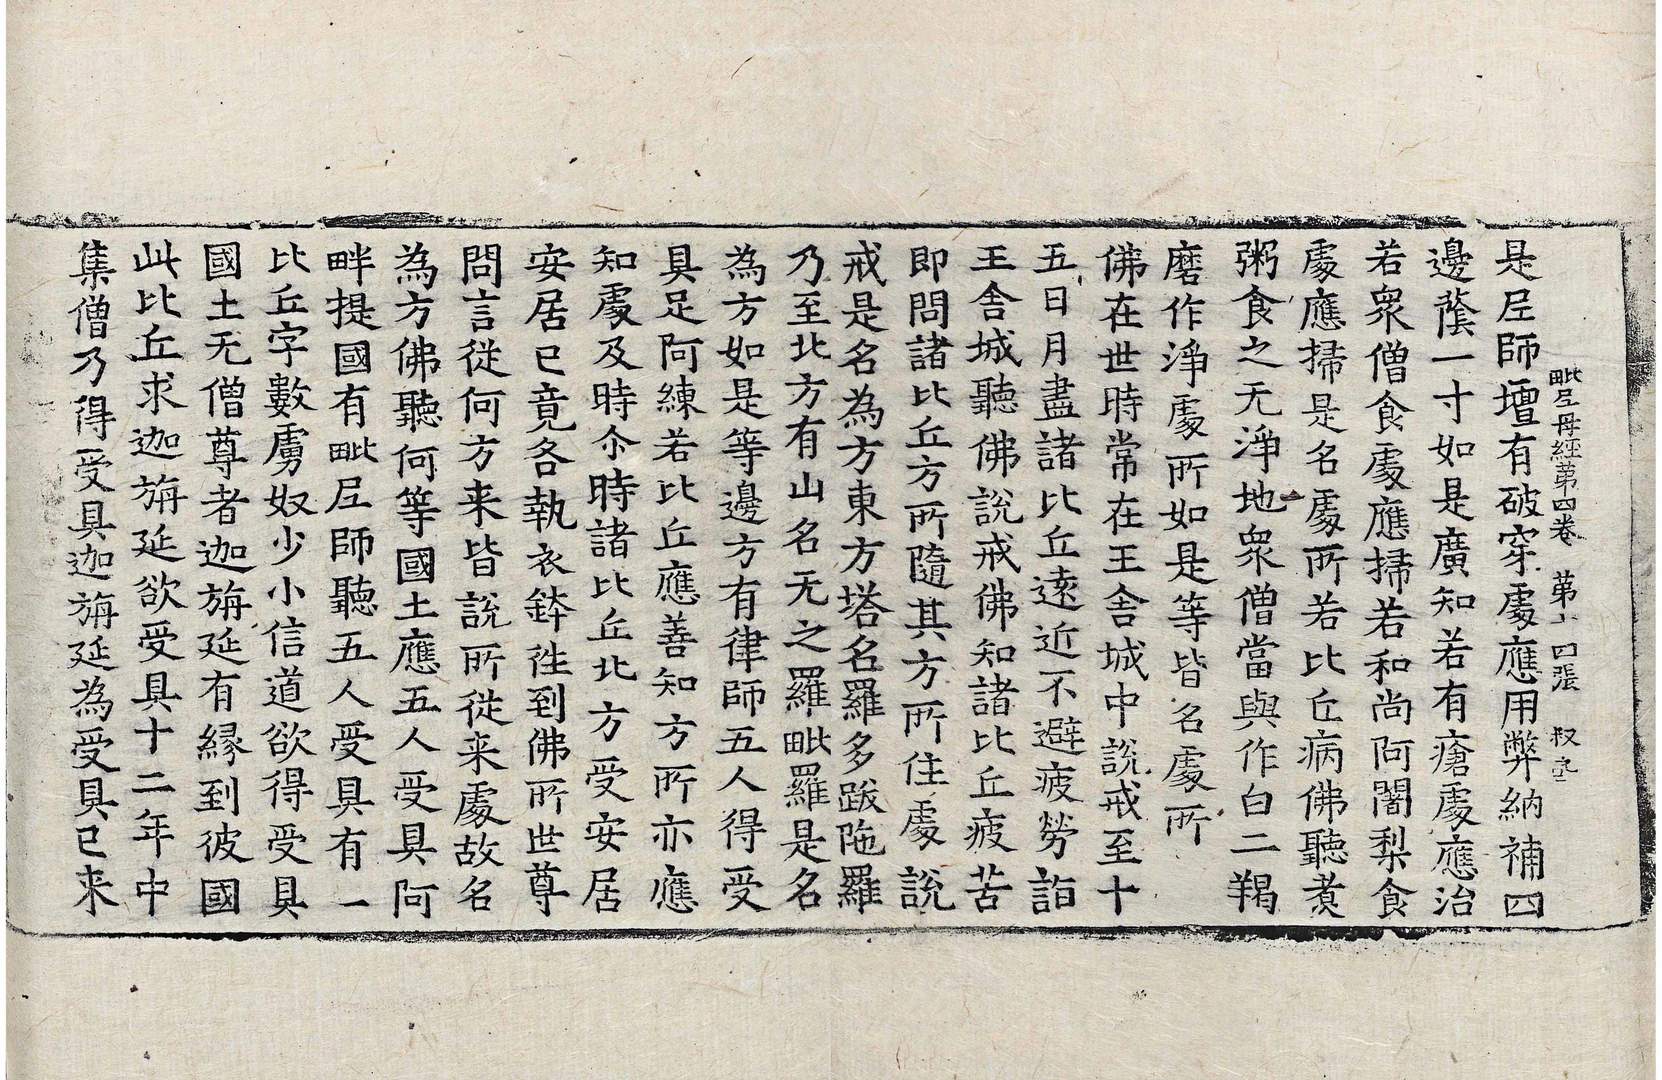 毗尼母經第四卷 第十四張 叔
是尼師壇有破穿處應用弊納補四
邊蔭一寸如是廣知若有瘡處應治
若衆僧食處應掃若和尚阿闍梨食
處應掃是名處所若比丘病佛聽煮
粥食之无淨地衆僧當與作白二羯
磨作淨處所如是等皆名處所
佛在世時常在王舍城中說戒至十
五日月盡諸比丘遠近不避疲勞詣
王舍城聽佛說戒佛知諸比丘疲苦
即問諸比丘方所隨其方所住處說
戒是名為方東方塔名羅多跋陁羅
乃至北方有山名无之羅毗羅是名
為方如是等邊方有律師五人得受
具足阿練若比丘應善知方所亦應
知處及時尒時諸比丘北方受安居
安居已竟各執衣鉢徃到佛所世尊
問言從何方来皆說所從来處故名
為方佛聽何等國土應五人受具阿
畔提國有毗尼師聽五人受具有一
比丘字數虜奴少小信道欲得受具
國土无僧尊者迦旃延有縁到彼國
此比丘求迦旃延欲受具十二年中
集僧乃得受具迦旃延為受具已来